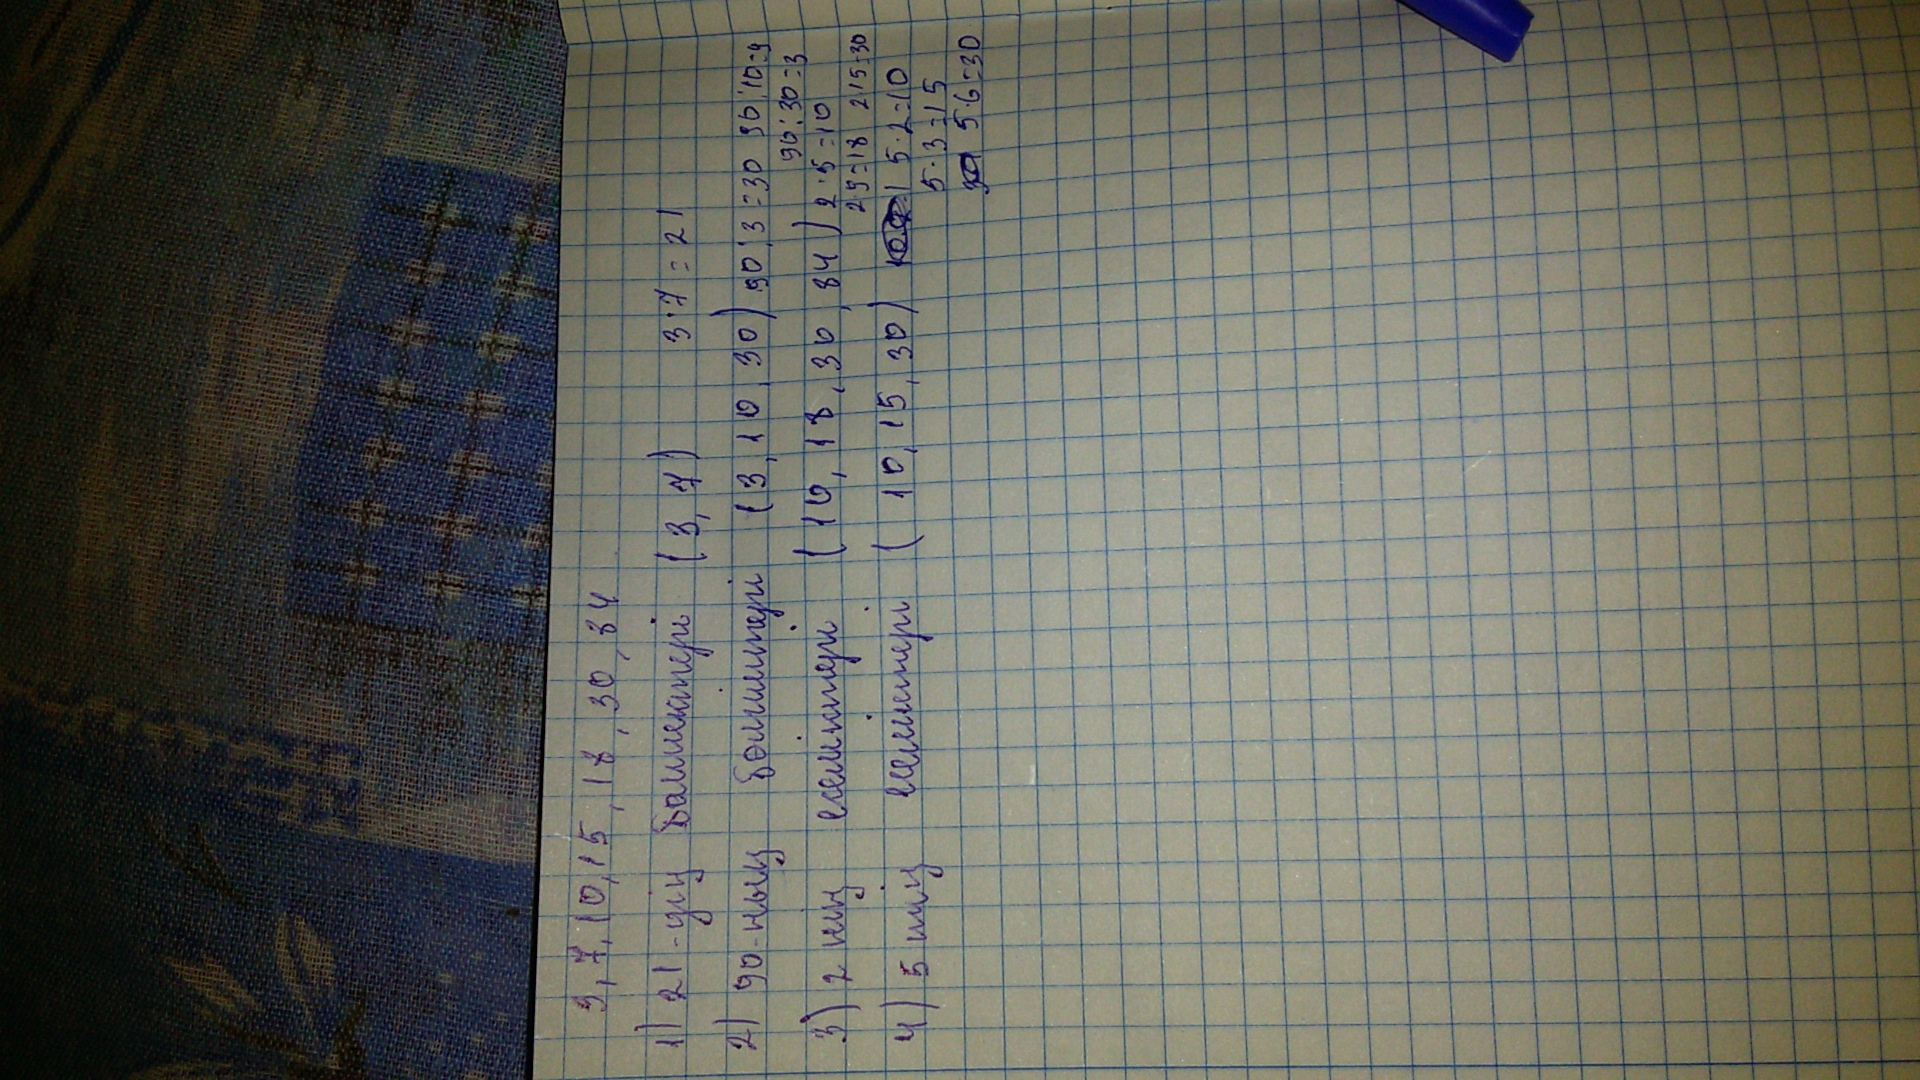 3, 7, 10, 15, 18, 30, 84
1) 21-дің бөлшектері (3, 7) 3·7=21
2) 90-ның бөлшектері (3, 10, 30) 90:3=30 90:10=9
90:30=3
3) 2 нің еселіктері (10, 18, 30, 84) 2·5=10
2·9=18 2·15=30
4) 5 тің еселіктері (10, 15, 30) 5·2=10
5·3=15
5·6=30